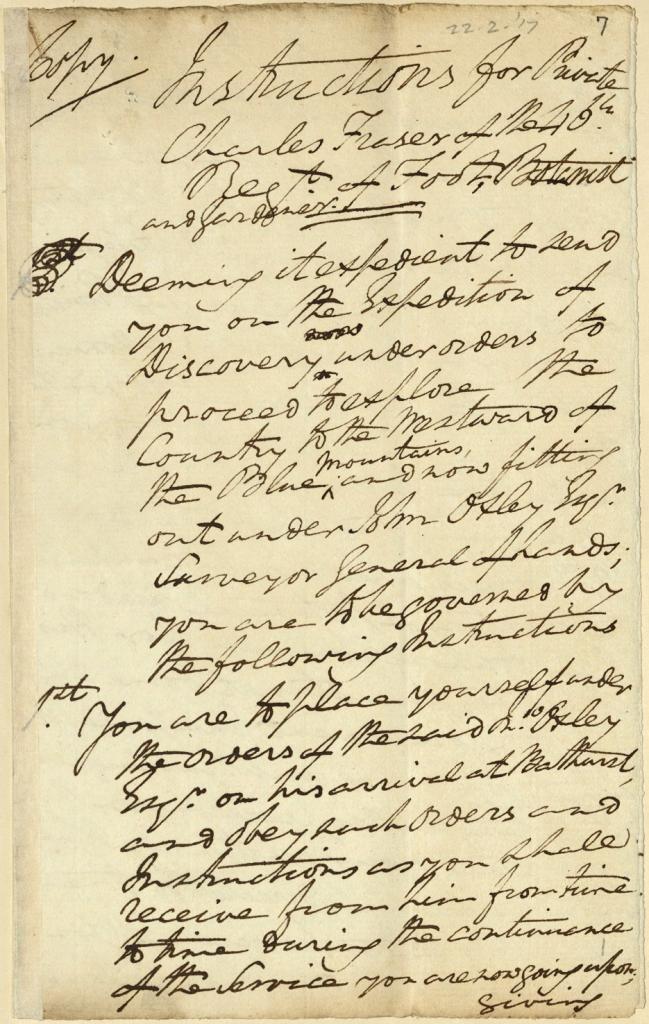 22-2-'17 7
Copy.
Instructions for Private
Charles Fraser, of the 46th.
Regt. of Foot, Botanist
and Gardener.
Deeming it expedient to send
you on the Expedition of
Discovery under orders to
proceed to explore the
Country to the Westward of
the Blue Mountains, and now fitting
out under John Oxley Esqr.
Surveyor General of Lands;
you are to be governed by
the following Instructions
1st. You are to place yourself under
the orders of the said Oxley
Esqr. on his arrival at Bathurst,
and obey such Orders and
Instructions as you shall
receive from him from time
to time During the continuance
of the Service you are now going upon;
giving